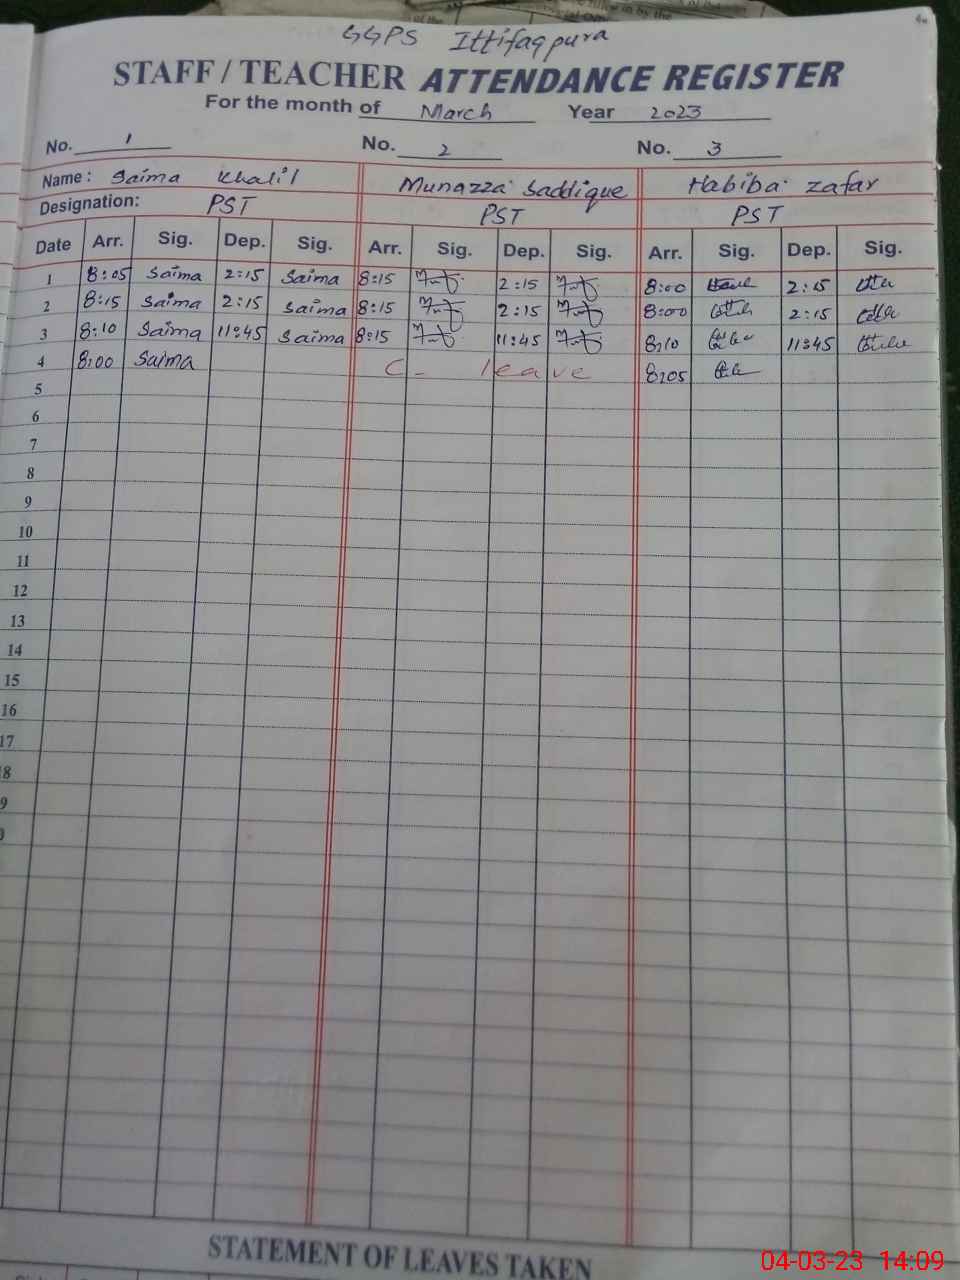 GGPS Ittifaqpura
STAFF / TEACHER ATTENDANCE REGISTER
For the month of March Year 2023
No. 1 No. 2 No. 3
Name: Saima Khalil Munazza Saddique Habiba Zafar
Designation: PST PST PST
Date Arr. Sig. Dep. Sig. Arr. Sig. Dep. Sig. Arr. Sig. Dep. Sig.
1 8:05 Saima 2:15 Saima 8:15 2:15 8:00 2:15
2 8:15 Saima 2:15 Saima 8:15 2:15 8:00 2:15
3 8:10 Saima 11:45 Saima 8:15 11:45 8:10 11:45
4 8:00 Saima C- leave 8:05
5
6
7
8
9
10
11
12
13
14
15
16
17
8
9
STATEMENT OF LEAVES TAKEN
04-03-23 14:09